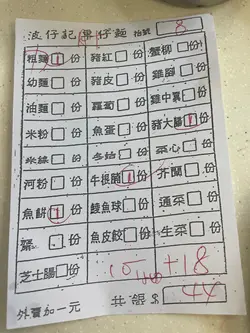 波仔記車仔麵 檯號 8
粗麵 1 份 豬紅 份 蟹柳 份
幼麵 份 豬皮 份 雞腳 份
油麵 份 蘿蔔 份 雞中翼 份
米粉 份 魚蛋 份 豬大腸 1 份
米線 份 冬菇 份 菜心 份
河粉 份 牛根腩 1 份 芥蘭 份
魚餅 1 份 鯪魚球 份 通菜 份
齋 份 魚皮餃 份 生菜 份
芝士腸 份 +18
外賣加一元 共銀$ 44